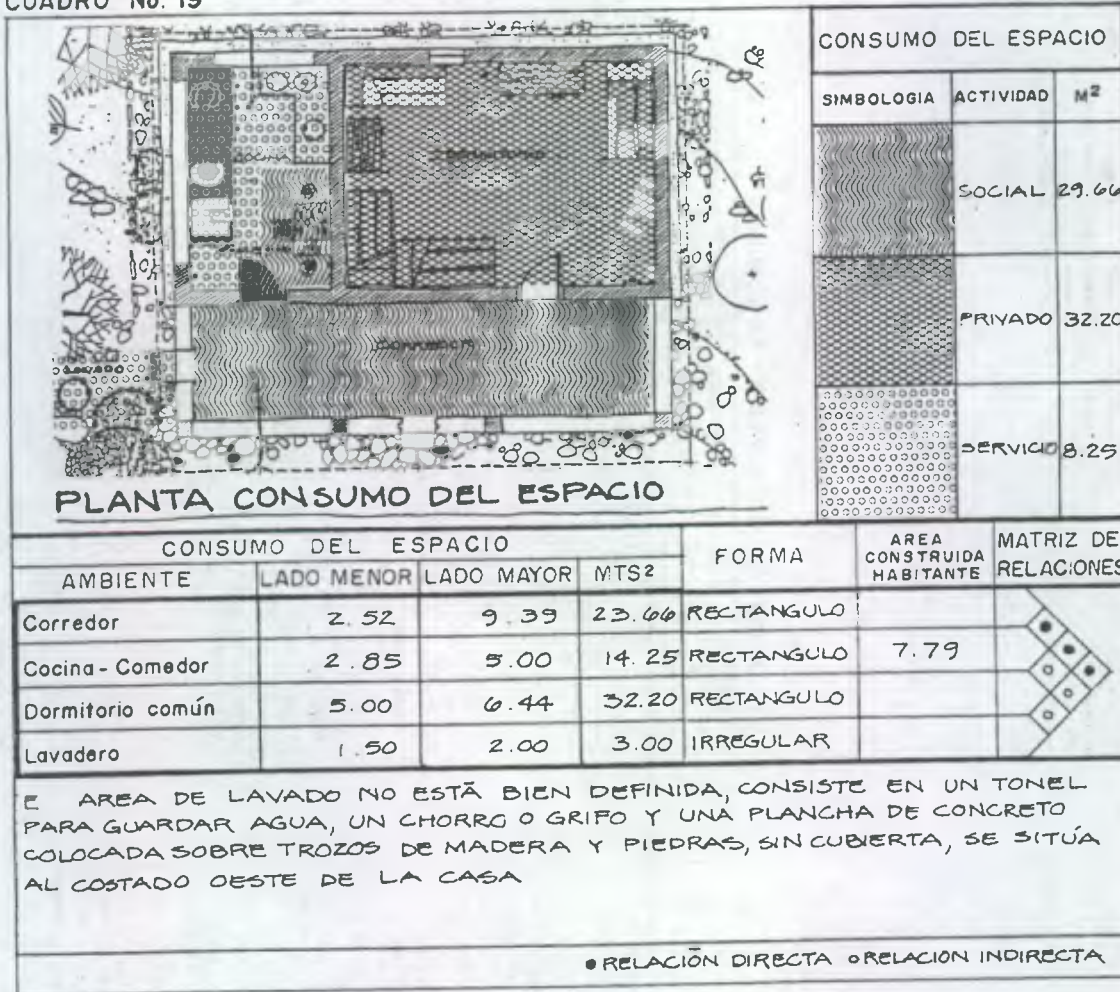 CUADRO No. 19
CONSUMO DEL ESPACIO
SIMBOLOGIA ACTIVIDAD M²
SOCIAL 29.66
PRIVADO 32.20
SERVICIO 8.25
CORREDOR
PLANTA CONSUMO DEL ESPACIO
CONSUMO DEL ESPACIO FORMA AREA CONSTRUIDA HABITANTE MATRIZ DE RELACIONES
AMBIENTE LADO MENOR LADO MAYOR MTS2
Corredor 2.52 9.39 23.66 RECTANGULO
Cocina-Comedor 2.85 5.00 14.25 RECTANGULO 7.79
Dormitorio común 5.00 6.44 32.20 RECTANGULO
Lavadero 1.50 2.00 3.00 IRREGULAR
E AREA DE LAVADO NO ESTÁ BIEN DEFINIDA, CONSISTE EN UN TONEL
PARA GUARDAR AGUA, UN CHORRO O GRIFO Y UNA PLANCHA DE CONCRETO
COLOCADA SOBRE TROZOS DE MADERA Y PIEDRAS, SIN CUBIERTA, SE SITÚA
AL COSTADO OESTE DE LA CASA
●RELACIÓN DIRECTA ○RELACION INDIRECTA